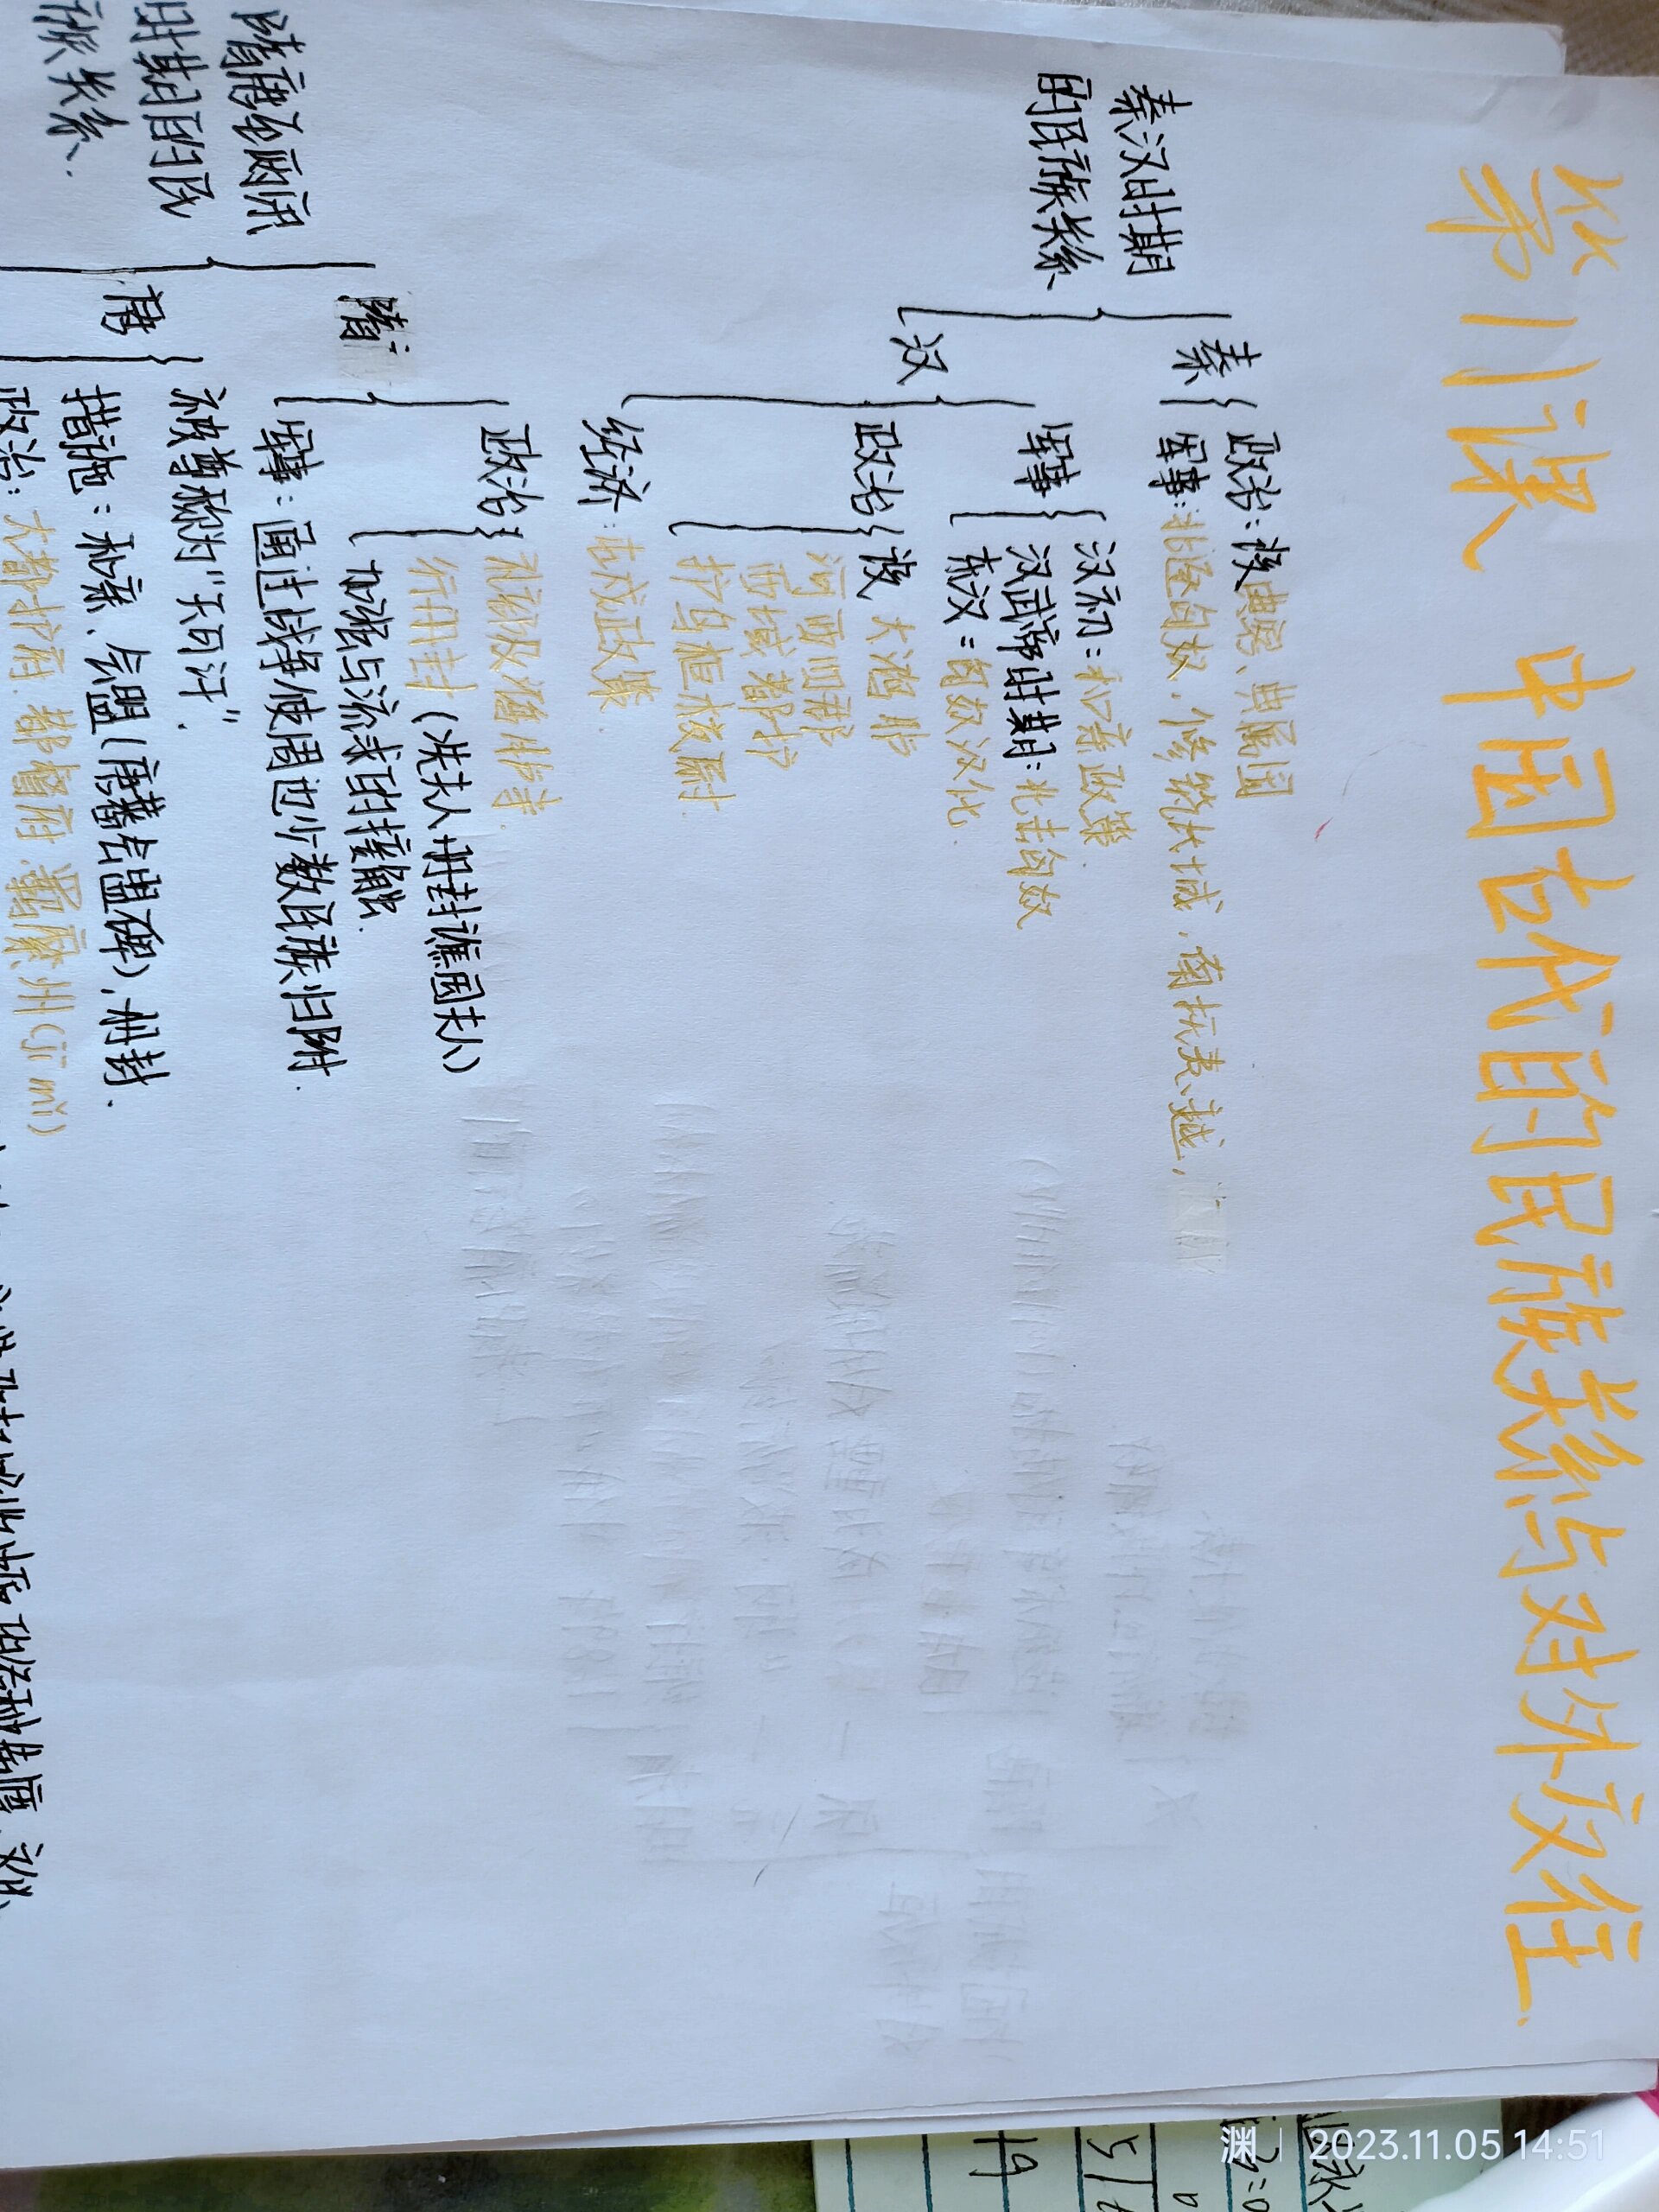 第11课 中国古代的民族关系与对外交往
秦汉时期
的民族关系
秦
政治：设典客、典属国
军事：北逐匈奴，修筑长城，南抚夷越，
汉
军事
汉初：和亲政策
汉武帝时期：北击匈奴
东汉：匈奴汉化
政治
设 大鸿胪
河西四郡
西域都护
护乌桓校尉
经济：屯戍政策
隋唐至两宋
时期的民
族关系
隋
政治
礼部及鸿胪寺
行册封（冼夫人册封谯国夫人）
加强与流求的接触
军事：通过战争使周边少数民族归附
唐
被尊称为“天可汗”
措施：和亲、会盟（唐蕃会盟碑）、册封
政治：大都护府、都督府、羁縻州（jī mí）
渊 2023.11.05 14:51